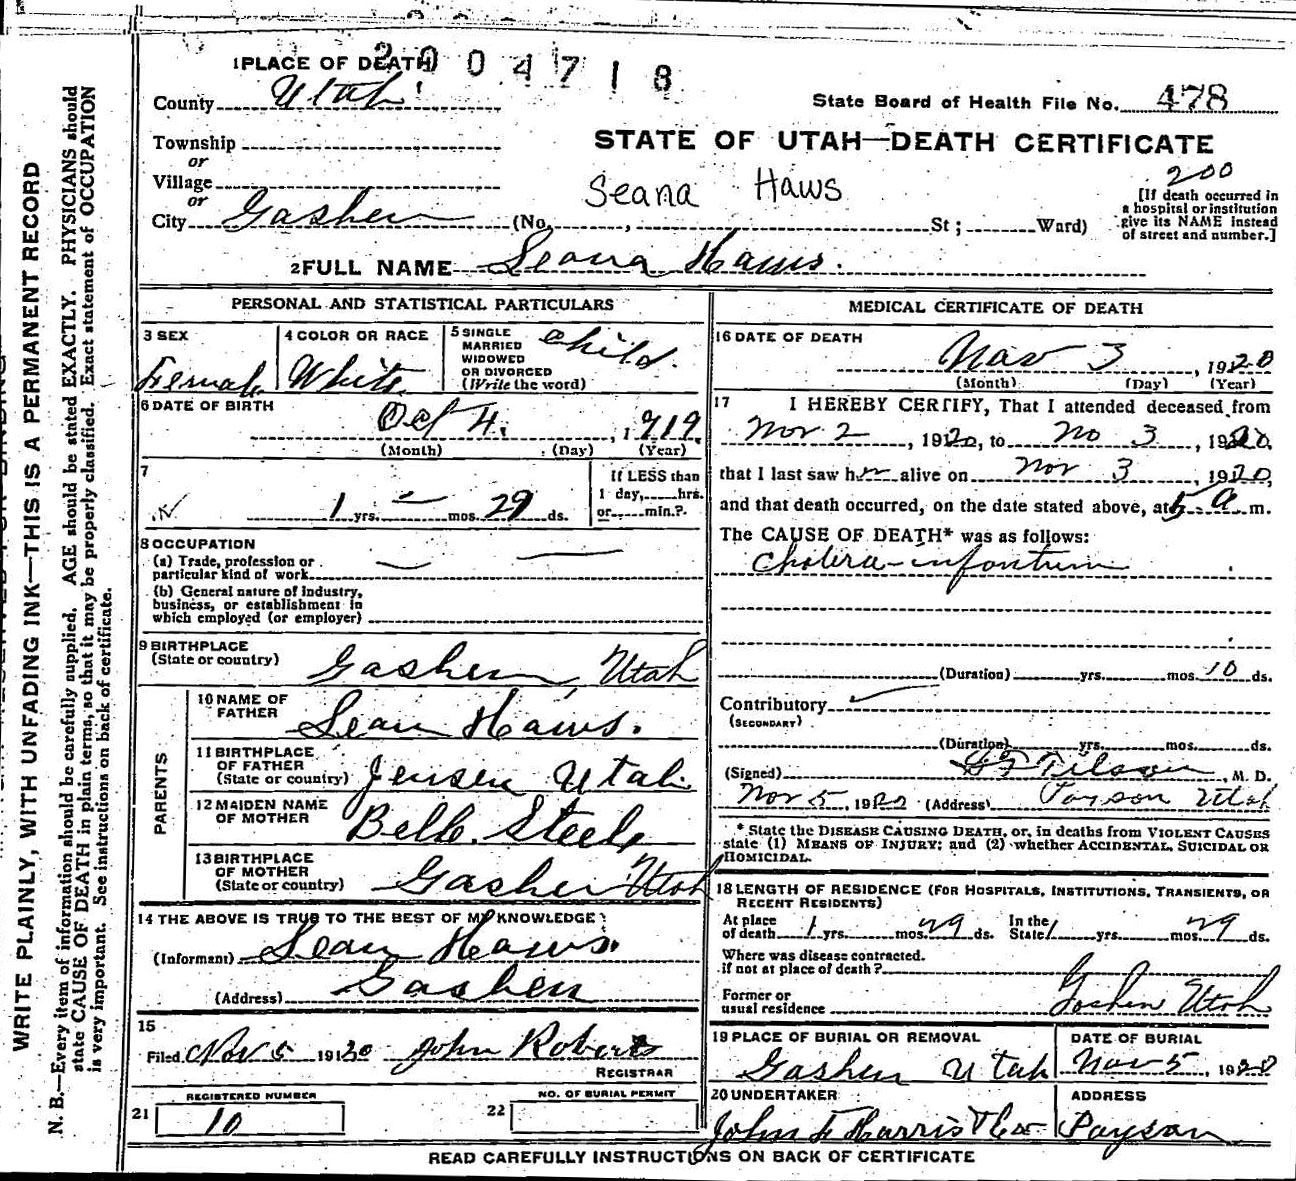 2004718
1 PLACE OF DEATH
County Utah
State Board of Health File No. 478
STATE OF UTAH—DEATH CERTIFICATE
Township
or
Village
or
City Goshen (No. , St; Ward)
Seana Haws
200
[If death occurred in
a hospital or institution
give its NAME instead
of street and number.]
2 FULL NAME Seana Haws.
PERSONAL AND STATISTICAL PARTICULARS
3 SEX
Female
4 COLOR OR RACE
White
5 SINGLE
MARRIED
WIDOWED
OR DIVORCED
(Write the word)
child.
6 DATE OF BIRTH
Oct 4, 1919
(Month) (Day) (Year)
7
1 yrs. — mos. 29 ds.
If LESS than
1 day, hrs.
or min.?
8 OCCUPATION
(a) Trade, profession or
particular kind of work
(b) General nature of industry,
business, or establishment in
which employed (or employer)
9 BIRTHPLACE
(State or country) Goshen, Utah
PARENTS
10 NAME OF
FATHER Sean Haws.
11 BIRTHPLACE
OF FATHER
(State or country) Jensen Utah
12 MAIDEN NAME
OF MOTHER Belle Steele
13 BIRTHPLACE
OF MOTHER
(State or country) Goshen Utah
14 THE ABOVE IS TRUE TO THE BEST OF MY KNOWLEDGE
(Informant) Sean Haws.
(Address) Goshen
15
Filed Nov 5 1920 John Roberts
REGISTRAR
REGISTERED NUMBER
21 10
NO. OF BURIAL PERMIT
22
MEDICAL CERTIFICATE OF DEATH
16 DATE OF DEATH
Nov 3, 1920
(Month) (Day) (Year)
17 I HEREBY CERTIFY, That I attended deceased from
Nov 2, 1920, to No 3, 1920,
that I last saw her alive on Nov 3 1920,
and that death occurred, on the date stated above, at 5 a m.
The CAUSE OF DEATH* was as follows:
Cholera-infantum
(Duration) yrs. mos. 10 ds.
Contributory
(SECONDARY)
(Duration) yrs. mos. ds.
(Signed) Tilson, M. D.
Nov 5, 1920 (Address) Payson Utah
* State the DISEASE CAUSING DEATH, or, in deaths from VIOLENT CAUSES
state (1) MEANS OF INJURY; and (2) whether ACCIDENTAL, SUICIDAL OR
HOMICIDAL.
18 LENGTH OF RESIDENCE (FOR HOSPITALS, INSTITUTIONS, TRANSIENTS, OR
RECENT RESIDENTS)
At place
of death 1 yrs. mos. 29 ds. In the
State 1 yrs. mos. 29 ds.
Where was disease contracted.
if not at place of death?
Former or
usual residence Goshen Utah
19 PLACE OF BURIAL OR REMOVAL
Goshen Utah
DATE OF BURIAL
Nov 5, 1920
20 UNDERTAKER
John F Harris & Co
ADDRESS
Payson
READ CAREFULLY INSTRUCTIONS ON BACK OF CERTIFICATE
WRITE PLAINLY, WITH UNFADING INK—THIS IS A PERMANENT RECORD
N. B.—Every item of information should be carefully supplied. AGE should be stated EXACTLY. PHYSICIANS should
state CAUSE OF DEATH in plain terms, so that it may be properly classified. Exact statement of OCCUPATION
is very important. See instructions on back of certificate.